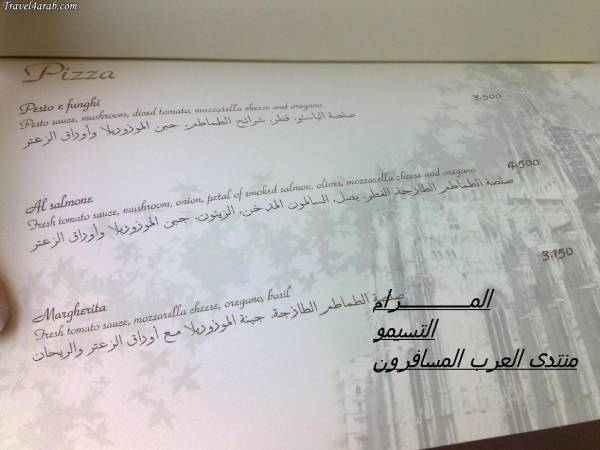 Travel4arab.com
Pizza
Pesto e funghi
3.500
Pesto sauce, mushroom, diced tomato, mozzarella cheese and oregano
صلصة الباستو، فطر، شرائح الطماطم، جبن الموزوريلا وأوراق الزعتر
Al salmone
4.500
Fresh tomato sauce, mushroom, onion, petal of smoked salmon, olives, mozzarella cheese and oregano
صلصة الطماطم الطازجة، الفطر، بصل، السالمون المدخن، الزيتون، جبن الموزوريلا وأوراق الزعتر
Margherita
3.150
Fresh tomato sauce, mozzarella cheese, oregano, basil
صلصة الطماطم الطازجة، جبنة الموزوريلا مع أوراق الزعتر والريحان
المـــــــرام
التسيمو
منتدى العرب المسافرون